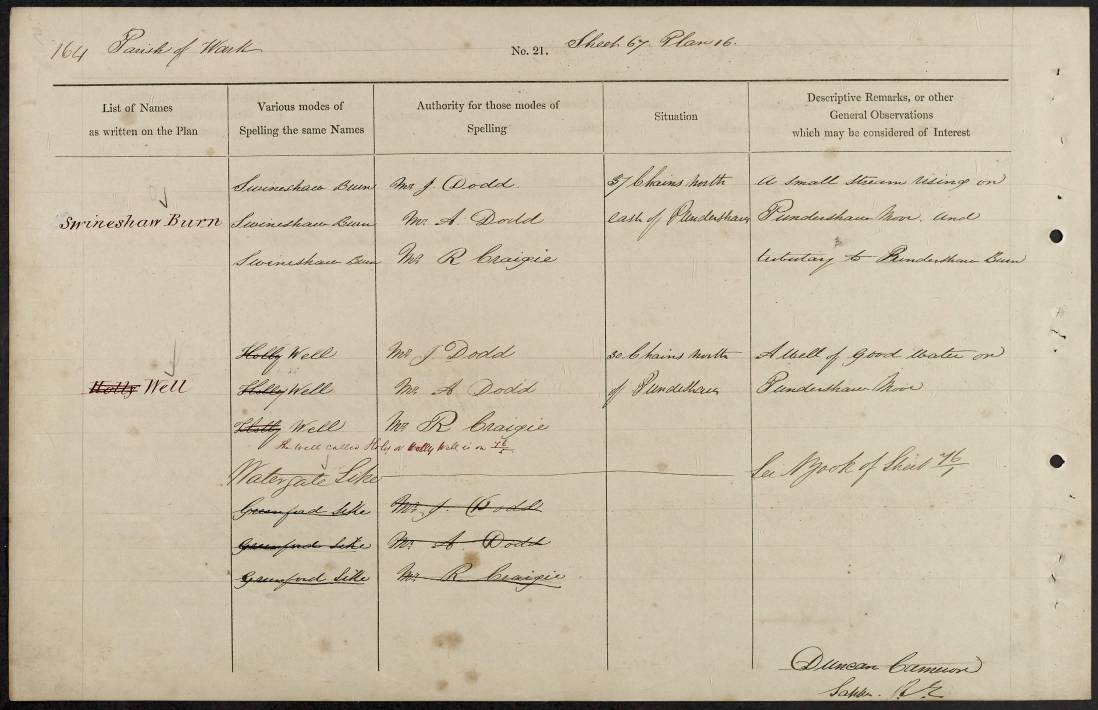 164 Parish of Wark No. 21. Sheet 67. Plan 16.
List of Names as written on the Plan
Various modes of Spelling the same Names
Authority for those modes of Spelling
Situation
Descriptive Remarks, or other General Observations which may be considered of Interest
Swineshaw Burn Mr. J. Dodd. 37 Chains North A small stream rising on
Swineshaw Burn Swineshaw Burn Mr. A. Dodd east of Pundershaw Pundershaw Moor. and
Swineshaw Burn Mr. R Craigie tributary to Pundershaw Burn
Holly Well Mr. J Dodd 30 Chains North A Well of good water on
Holly Well Holly Well Mr. A Dodd of Pundershaw Pundershaw Moor
Holly Well Mr. R Craigie
the Well called Holy or Holly Well is on 76/5
Watergate Sike See Book of Sheet 76/1
Greenford Sike Mr. J. Dodd
Greenford Sike Mr. A. Dodd
Greenford Sike Mr. R Craigie
Duncan Cameron
Sapper. R.E.